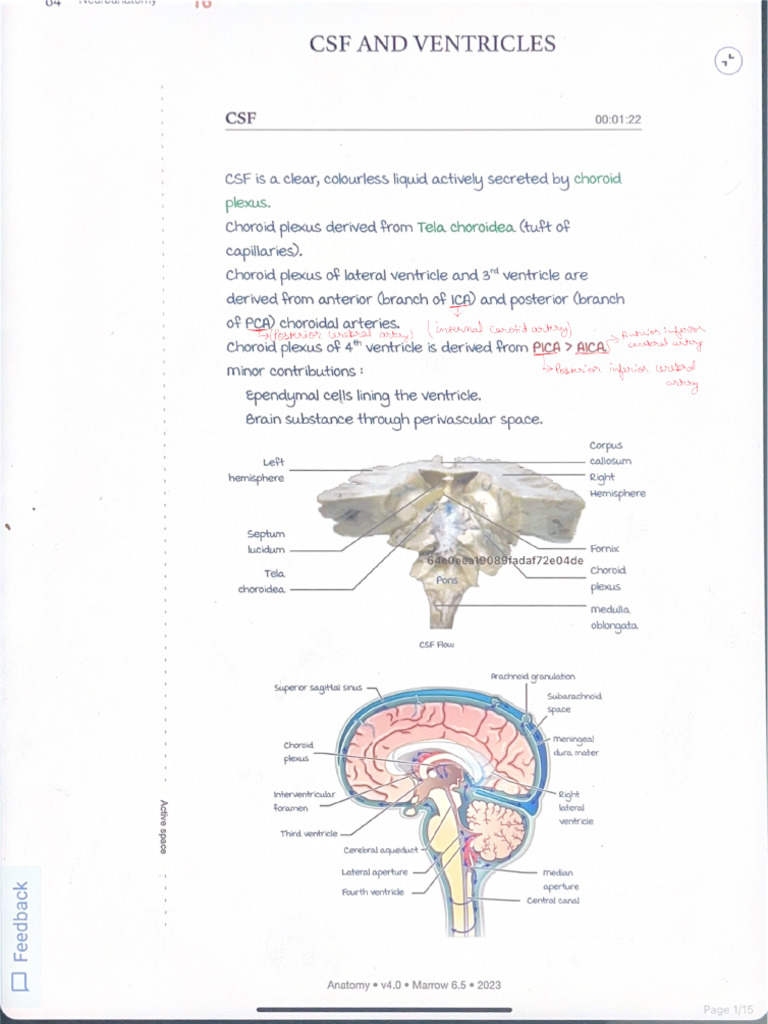 04
Neuroanatomy
16
CSF AND VENTRICLES
CSF
00:01:22
CSF is a clear, colourless liquid actively secreted by choroid
plexus.
Choroid plexus derived from Tela choroidea (tuft of
capillaries).
Choroid plexus of lateral ventricle and 3rd ventricle are
derived from anterior (branch of ICA) and posterior (branch
of PCA) choroidal arteries.
(internal carotid artery)
(Posterior cerebral artery)
Choroid plexus of 4th ventricle is derived from PICA > AICA
Anterior inferior
cerebral artery
Posterior inferior cerebral
artery
minor contributions :
Ependymal cells lining the ventricle.
Brain substance through perivascular space.
Left
hemisphere
Septum
lucidum
Tela
choroidea
Corpus
callosum
Right
Hemisphere
Fornix
Choroid
plexus
medulla
oblongata
64e0eea19089fadaf72e04de
Pons
CSF Flow
Superior sagittal sinus
Choroid
plexus
Interventricular
foramen
Third ventricle
Cerebral aqueduct
Lateral aperture
Fourth ventricle
Arachnoid granulation
Subarachnoid
space
meningeal
dura mater
Right
lateral
ventricle
median
aperture
Central canal
Active space
Feedback
Anatomy • v4.0 • Marrow 6.5 • 2023
Page 1/15